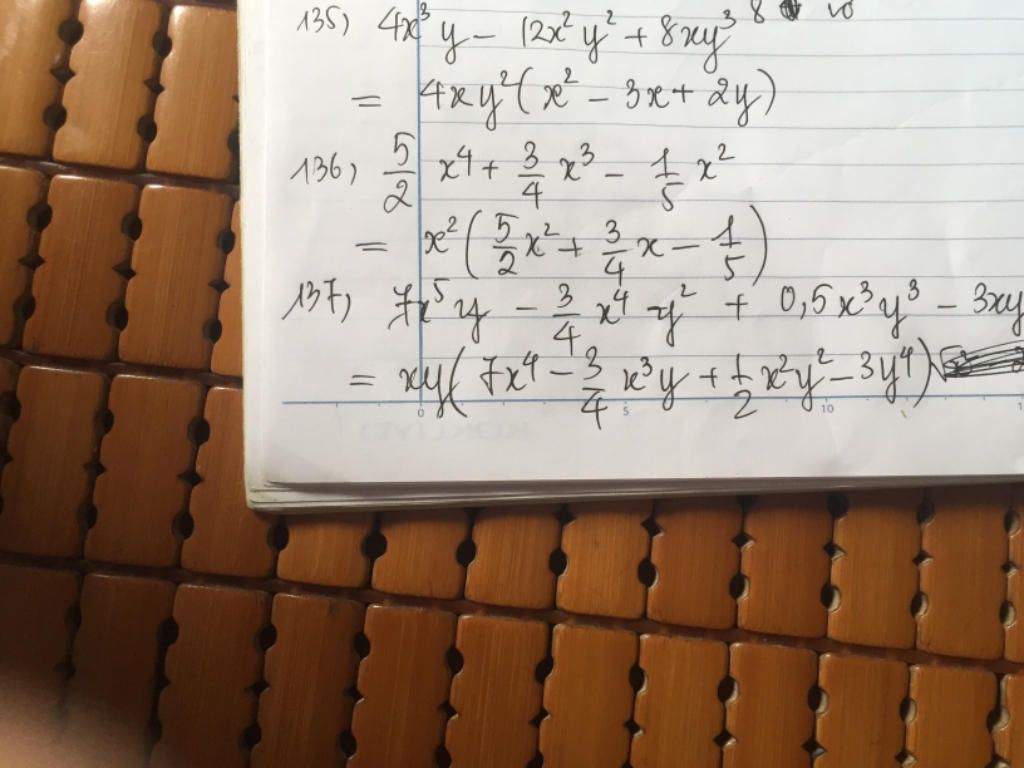 135, 4x³y - 12x²y² + 8xy³ 8
= 4xy²(x² - 3x + 2y)
136, 5/2 x⁴ + 3/4 x³ - 1/5 x²
= x²(5/2 x² + 3/4 x - 1/5)
137, 7x⁵y - 3/4 x⁴y² + 0,5x³y³ - 3xy
= xy(7x⁴ - 3/4 x³y + 1/2 x²y² - 3y⁴)
0 5 10